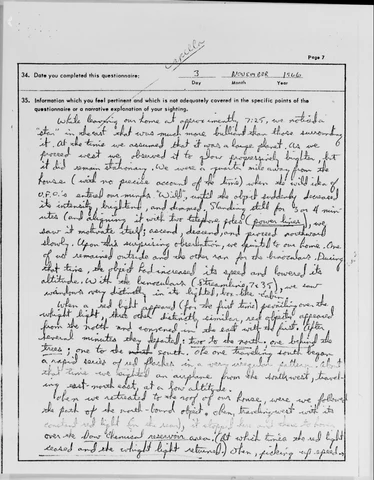 Capella
Page 7
34. Date you completed this questionnaire: 3 NOVEMBER 1966
Day Month Year
35. Information which you feel pertinent and which is not adequately covered in the specific points of the
questionnaire or a narrative explanation of your sighting.
While leaving our home at approximately 7:25, we noticed a
"star" in the east that was much more brilliant than those surrounding
it. At the time we assumed that it was a large planet. As we
proceed west we observed it to glow progressively brighter, but
it did remain stationary. We were a quarter mile away from the
house (with no precise account of the time) when the wild idea of
U.F.O.'s entered our minds. "Wild", until the object suddenly decreased
its intensity, brightened, and Standing still for 3 or 4 min-
utes (and aligning it with two telephone poles (power lines), we
saw it motivate itself; ascend, descend, and proceed northward
slowly. Upon this surprising observation, we sprinted to our home. One
of us remained outside and the other ran for the binoculars. During
that time, the object had increased its speed and lowered its
altitude. With the binoculars (Streamline 7x35), we saw
windows very distinctly in its lighted, top-like cabin.
When a red light appeared (for the first time) over the
whitish light, that other distinctly similar, red objects appeared
from the north and converged in the east with the first. After
several minutes they departed; two to the north, one behind the
trees; one to the south. The one traveling south began
a rapid series of red flashes in a very irregular pattern. About
that time we sighted an airplane from the southwest, travel-
ing east-north east, at a low altitude.
Then we retreated to the roof of our house, were we followed
the path of the north-bound object. Then, traveling west with its
constant red light for the it stopped and to hover
over the low chemical reservoir area. (At which time the red light
ceased and the whitish light returned.) Then, picking up speed,